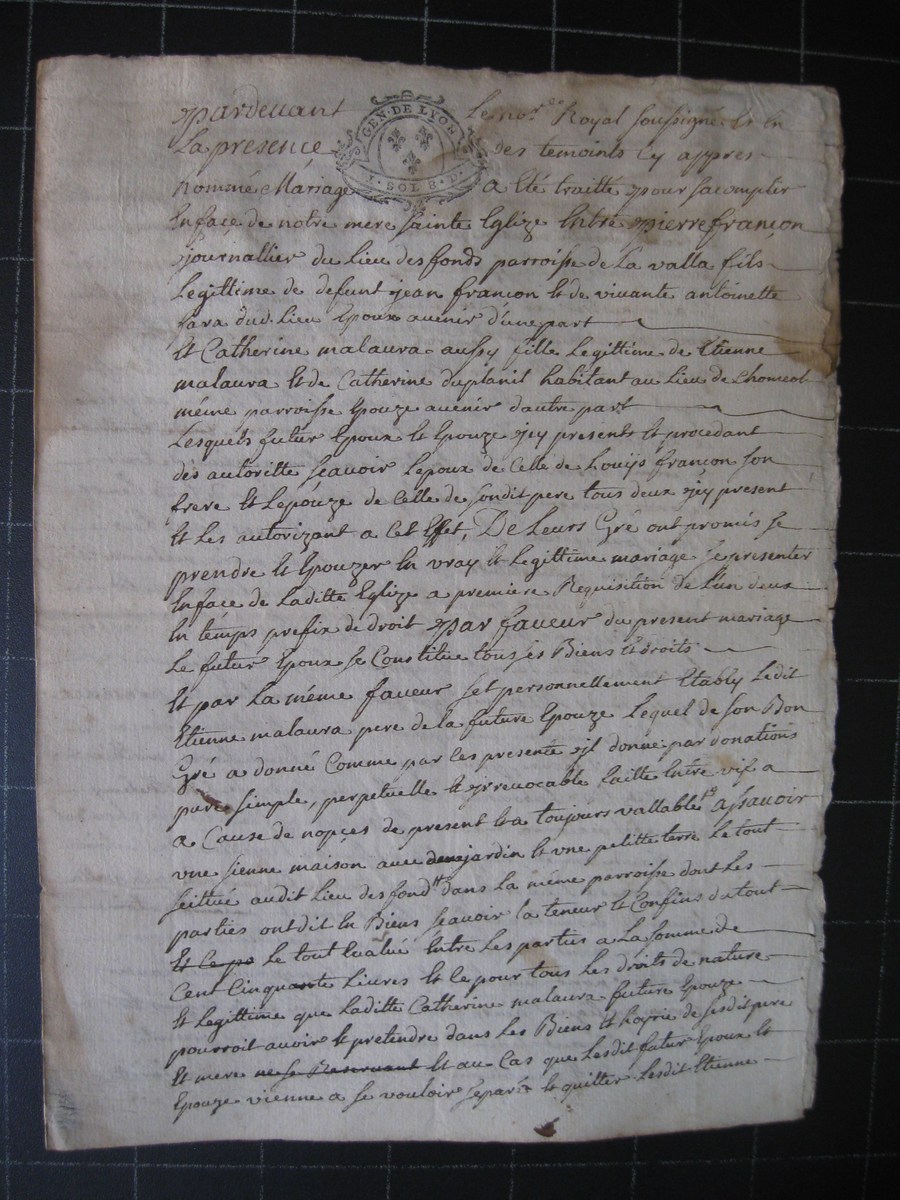 Pardevant le nore Royal soussigné et en
GEN. DE LYON
1. SOL 8. D.
La presence des temoints cy appres
nommé Mariage a été traitté pour sacomplir
En face de notre mere sainte Eglize Entre pierre françon
journallier du Lieu des fonds parroisse de La valla fils
Legittime de defunt jean françon et de vivante antoinette
fara dud. Lieu Epoux avenir d'une part
Et Catherine malaura aussy fille Legittime de Etienne
malaura Et de Catherine duplanil habitant au Lieu de Lhomeol
même parroisse Epouze avenir dautre part
Lesquels futur Epoux et Epouze jcy presents et procedant
des autoritté seavoir Lepoux de Celle de Louijs françon son
frere Et Lepouze de Celle de sondit pere tous deux jcy present
Et Les autorizant a Cet Effet, De Leurs Gré ont promis se
prendre Et Epouzer En vray Et Legittime mariage se presenter
En face de Laditte Eglize a premiere Requisition de L'un deux
En temps prefix de droit par faveur du present mariage
Le futur Epoux se Constitue tous ses Biens Et droits
Et par La même faveur s'et personnellement Etably Ledit
Etienne malaura pere de la future Epouze Lequel de son Bon
Gré a donné Comme par Les presente jil donne par donations
pure simple, perpetuelle Et jrrevocable faitte Entre vif a
a Cause de nopçes de present Et a toujours vallable assavoir
vne sienne maison avec jardin Et vne petitte terre Le tout
scittué audit Lieu des fondtt dans La même parroisse dont Les
parties ont dit En Biens seavoir La teneur Et Confins du tout
Et Ce po Le tout Evalué Entre Les parties a La somme de
Cent Cinquante Livres Et Ce pour tous Les droits de nature
Et Legittime que Laditte Catherine malaura future Epouze
pourroit auvoir Et pretendre dans Les Biens Et hoyrie de sesdit pere
Et mere ne se Reservant Et au Cas que Lesdit futur Epoux Et
Epouze vienne a se vouloir separér Et quitter Lesdit Etienne